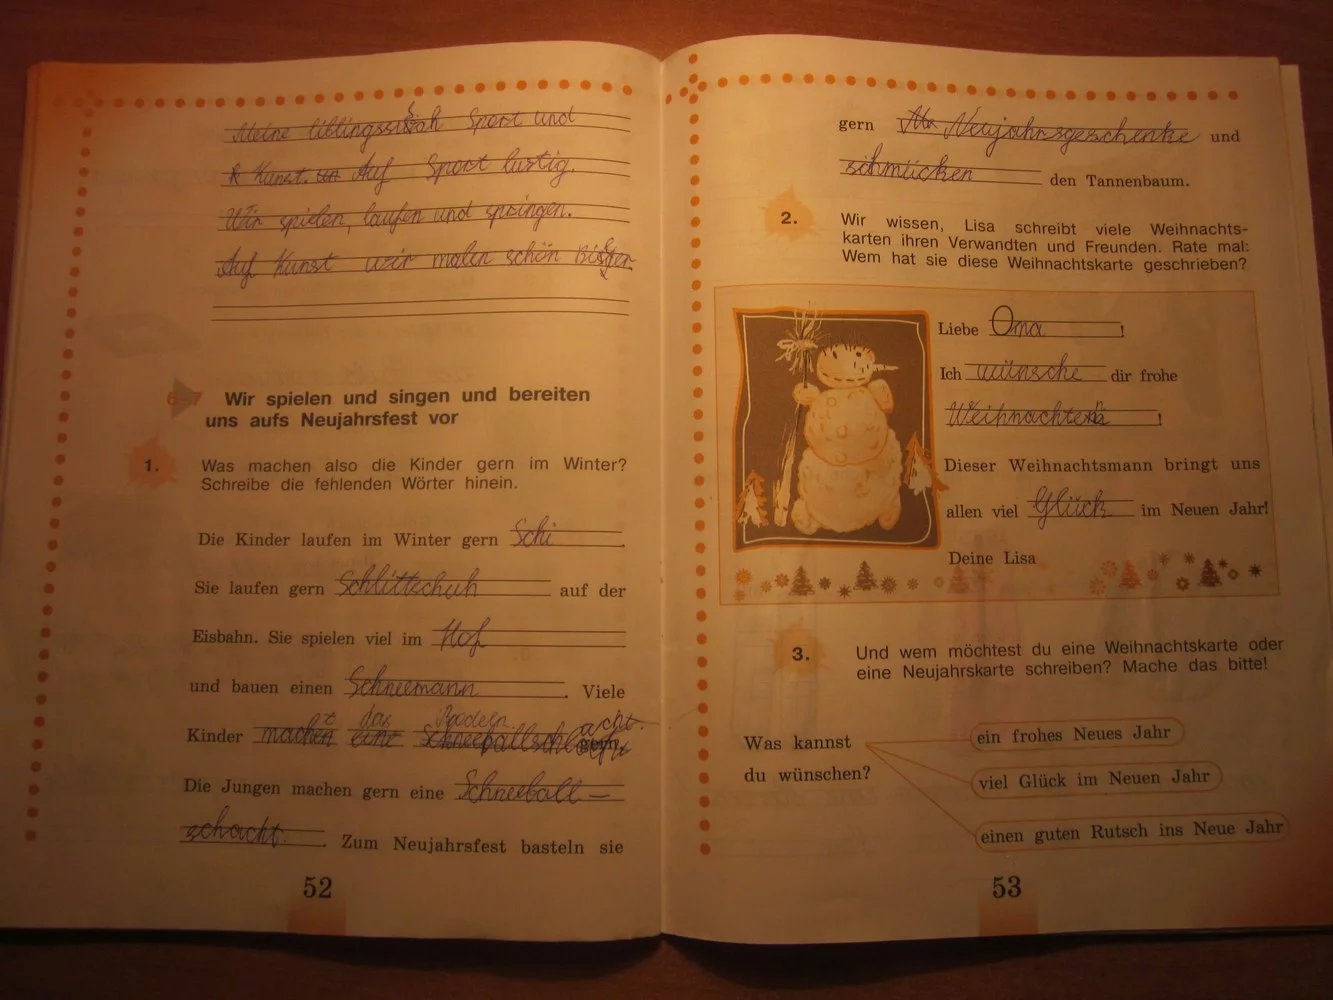 Meine liblingssach Sport und
Kunst. Auf Sport lustig.
Wir spielen, laufen und springen.
Auf Kunst wir malen schön
6–7 Wir spielen und singen und bereiten
uns aufs Neujahrsfest vor
1. Was machen also die Kinder gern im Winter?
Schreibe die fehlenden Wörter hinein.
Die Kinder laufen im Winter gern Schi.
Sie laufen gern Schlittschuh auf der
Eisbahn. Sie spielen viel im Hof
und bauen einen Schneemann. Viele
das Rodeln
Kinder gern.
Die Jungen machen gern eine Schneeball–
schacht. Zum Neujahrsfest basteln sie
52
gern Neujahrsgeschenke und
schmücken den Tannenbaum.
2. Wir wissen, Lisa schreibt viele Weihnachts-
karten ihren Verwandten und Freunden. Rate mal:
Wem hat sie diese Weihnachtskarte geschrieben?
Liebe Oma!
Ich wünsche dir frohe
Weihnachten!
Dieser Weihnachtsmann bringt uns
allen viel Glück im Neuen Jahr!
Deine Lisa
3. Und wem möchtest du eine Weihnachtskarte oder
eine Neujahrskarte schreiben? Mache das bitte!
Was kannst
du wünschen?
ein frohes Neues Jahr
viel Glück im Neuen Jahr
einen guten Rutsch ins Neue Jahr
53